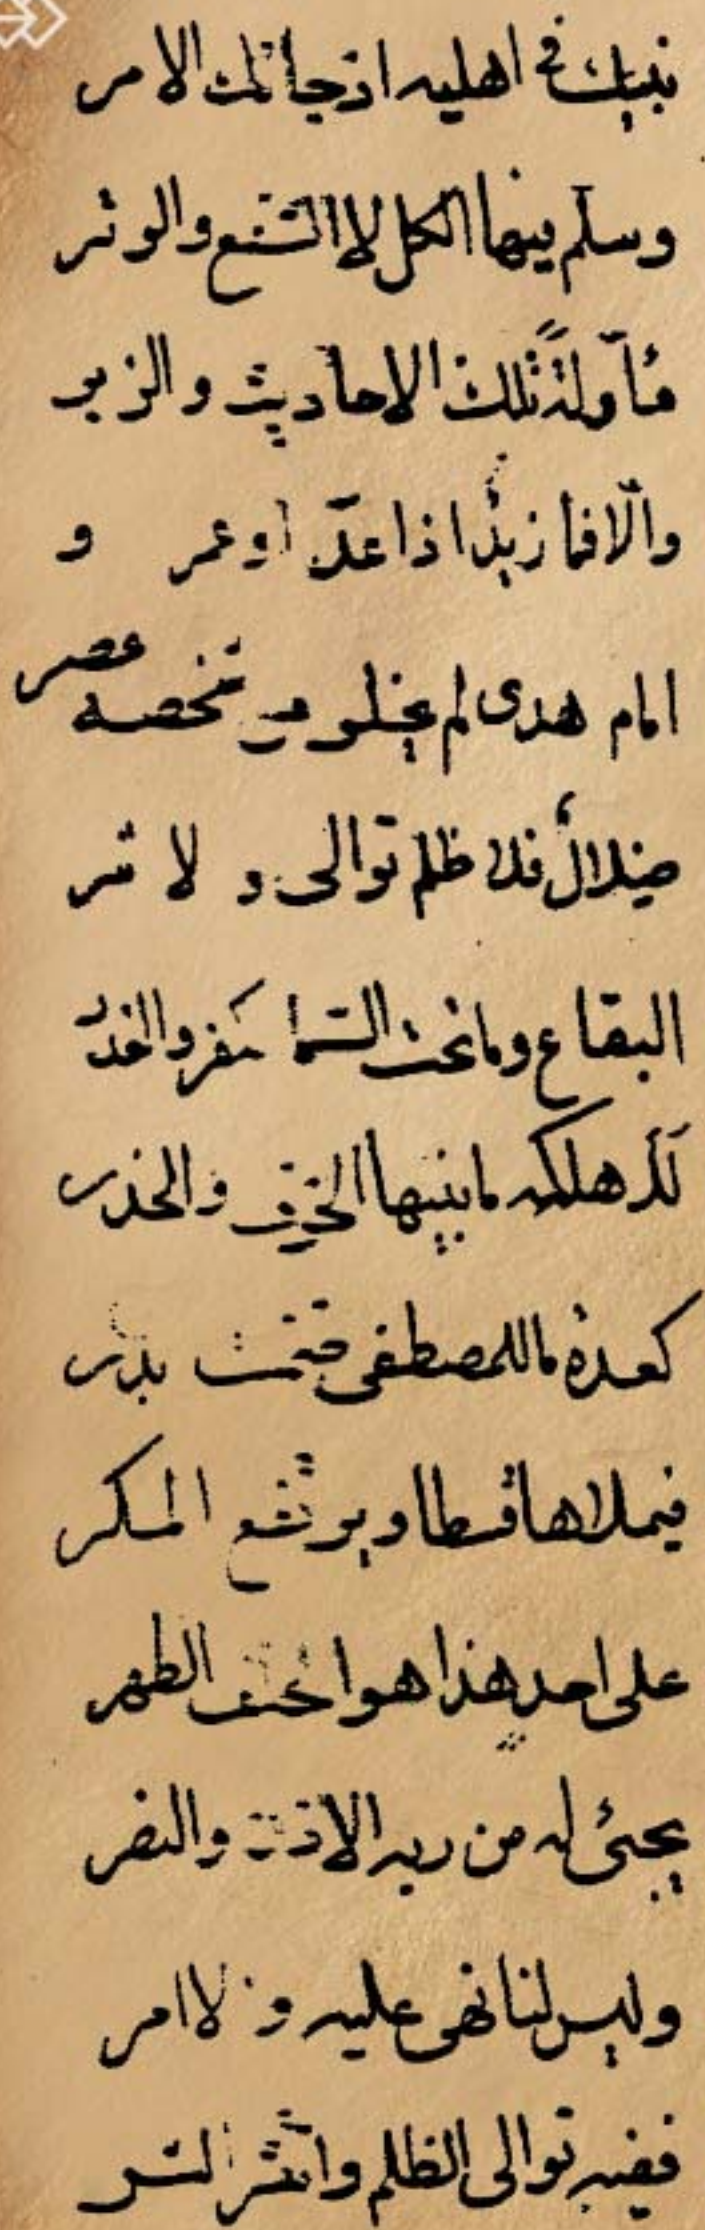 نبيك في اهليه اذ جائك الامر
وسلم بينها الكل لا الشفع والوتر
مأولة تلك الاحاديث والزبر
والّا فما زيدٌ اذا عدّ او عمر و
امام هدى لم يخلو من شخصه عصر
ضلالٌ فلا ظلم توالى و لا شر
البقاع وما تحت السما كفر والغدر
ما بينها الخوف والحذر
كعدة ما للمصطفى ضمت بدر
فيملاها قسطا ويرتفع المكر
على احدٍ هذا هو الطهر
يجئ له من ربه الاذن والنصر
وليس لنا نهى عليه ولا امر
ففيه توالى الظلم وانتشر الشر